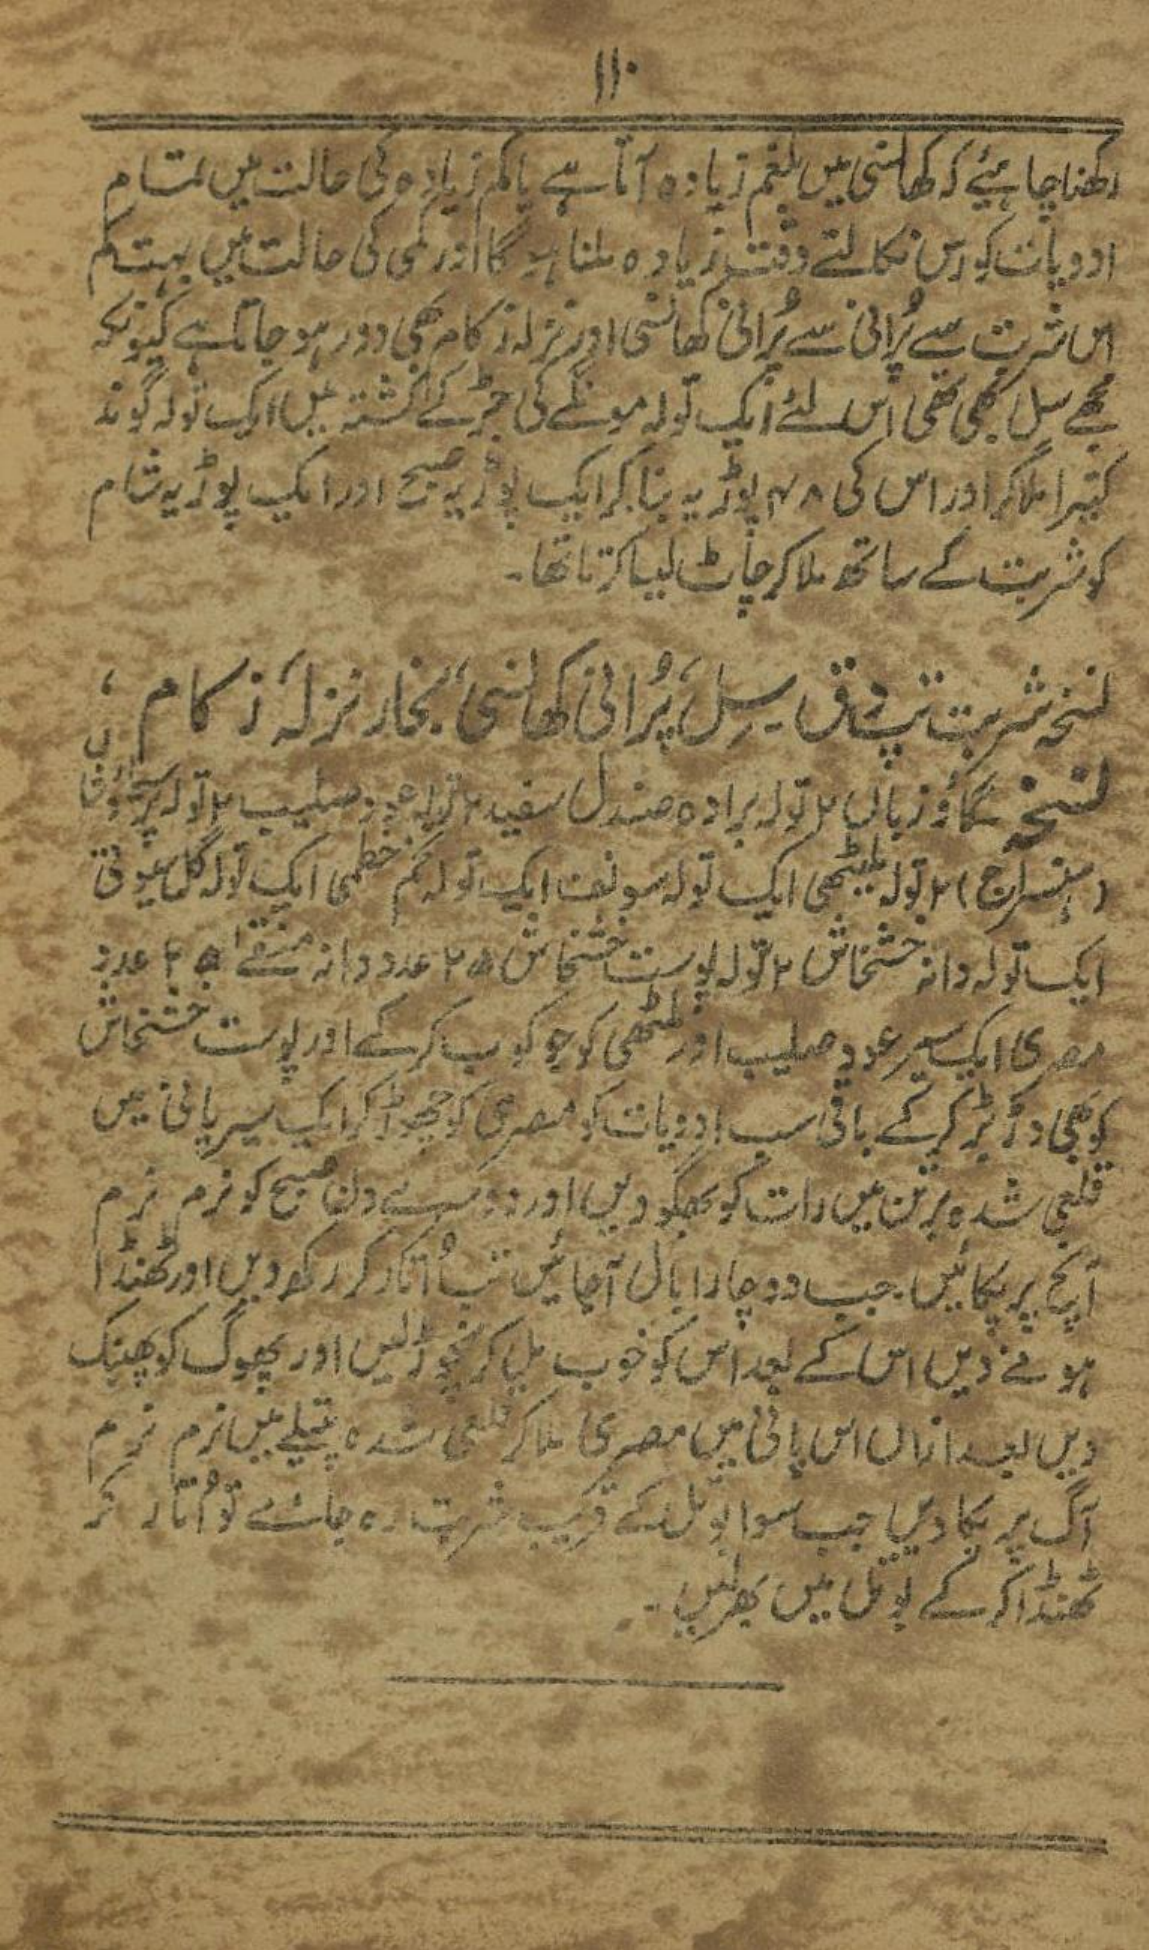 ۱۱۰
رکھنا چاہیئے کہ کھانسی میں بلغم زیادہ آتا ہے یا کم زیادہ کی حالت میں تمام
ادویات کو رس نکالتے وقت زیادہ ملنا ہو گا اور کمی کی حالت میں بہت کم
اس شربت سے پُرانی سے پُرانی کھانسی اور نزلہ زکام بھی دور ہو جاتا ہے کیونکہ
مجھے سل بھی تھی اس لئے ایک تولہ مونگے کی جڑ کے کشتہ میں ایک تولہ گوند
کتیرا ملا کر اور اس کی ۴۸ پوڑیہ بنا کر ایک پوڑیہ صبح اور ایک پوڑیہ شام
کو شربت کے ساتھ ملا کر چاٹ لیا کرتا تھا۔
نسخہ شربت تپ دق سِل، پُرانی کھانسی، بخار نزلہ، زکام،
نسخہ گاؤ زبان ۲ تولہ برادہ صندل سفید ۲ تولہ عود صلیب ۲ تولہ
(ہنسراج) ۲ تولہ ملیٹھی ایک تولہ سونف ایک تولہ تخم خطمی ایک تولہ گل سیوتی
ایک تولہ دانہ خشخاش ۲ تولہ پوست خشخاش ۲۵ عدد دانہ منقےٰ ۲۵ عدد
مصری ایک سیر عود صلیب اور ملٹھی کو جو کوب کر کے اور پوست خشخاش
کو بھی دڑ بڑ کر کے باقی سب ادویات کو مصری کو چھوڑ کر ایک سیر پانی میں
قلعی شدہ برتن میں رات کو بھگو دیں اور دوسرے دن صبح کو نرم نرم
آنچ پر پکائیں۔ جب دو چار ابال آجائیں تب اُتار کر رکھ دیں اور ٹھنڈا
ہونے دیں اس کے بعد اس کو خوب مل کر نچوڑ لیں اور پھوگ کو پھینک
دیں بعد ازاں اس پانی میں مصری ملا کر قلعی شدہ پتیلے میں نرم نرم
آگ پر پکا دیں جب سوا بوتل کے قریب شربت رہ جائے تو اُتار کر
ٹھنڈا کر کے بوتل میں بھر لیں۔